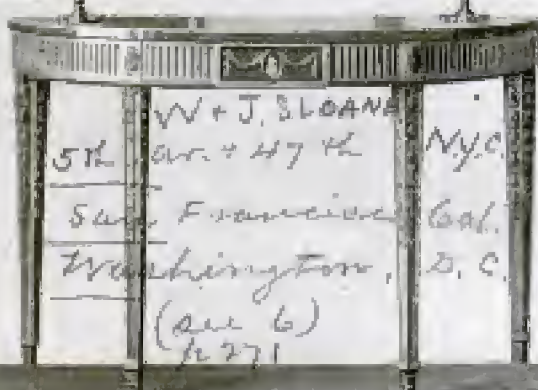 W + J. SLOANE
5th av. + 47th N.Y.C.
San Francisco Cal.
Washington, D.C.
(see 6)
p 271